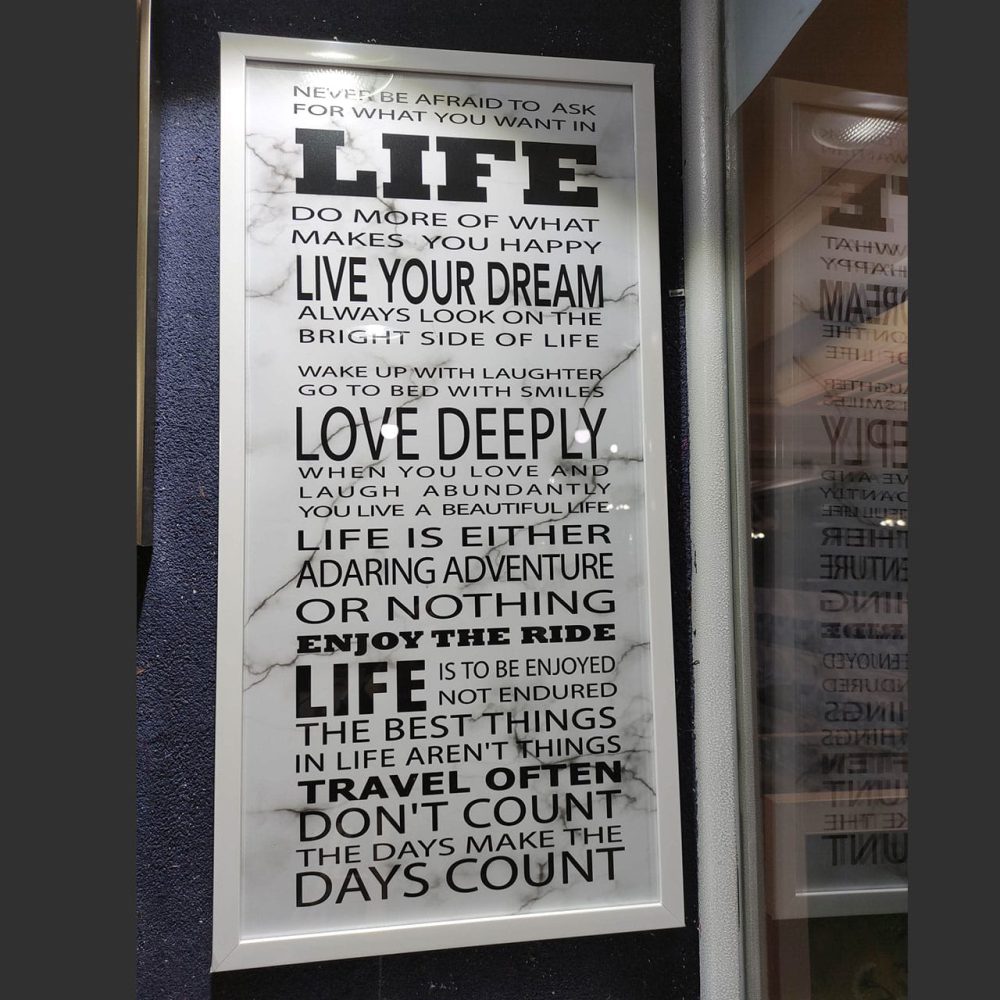 NEVER BE AFRAID TO ASK
FOR WHAT YOU WANT IN
LIFE
DO MORE OF WHAT
MAKES YOU HAPPY
LIVE YOUR DREAM
ALWAYS LOOK ON THE
BRIGHT SIDE OF LIFE
WAKE UP WITH LAUGHTER
GO TO BED WITH SMILES
LOVE DEEPLY
WHEN YOU LOVE AND
LAUGH ABUNDANTLY
YOU LIVE A BEAUTIFUL LIFE
LIFE IS EITHER
ADARING ADVENTURE
OR NOTHING
ENJOY THE RIDE
LIFE IS TO BE ENJOYED
NOT ENDURED
THE BEST THINGS
IN LIFE AREN'T THINGS
TRAVEL OFTEN
DON'T COUNT
THE DAYS MAKE THE
DAYS COUNT